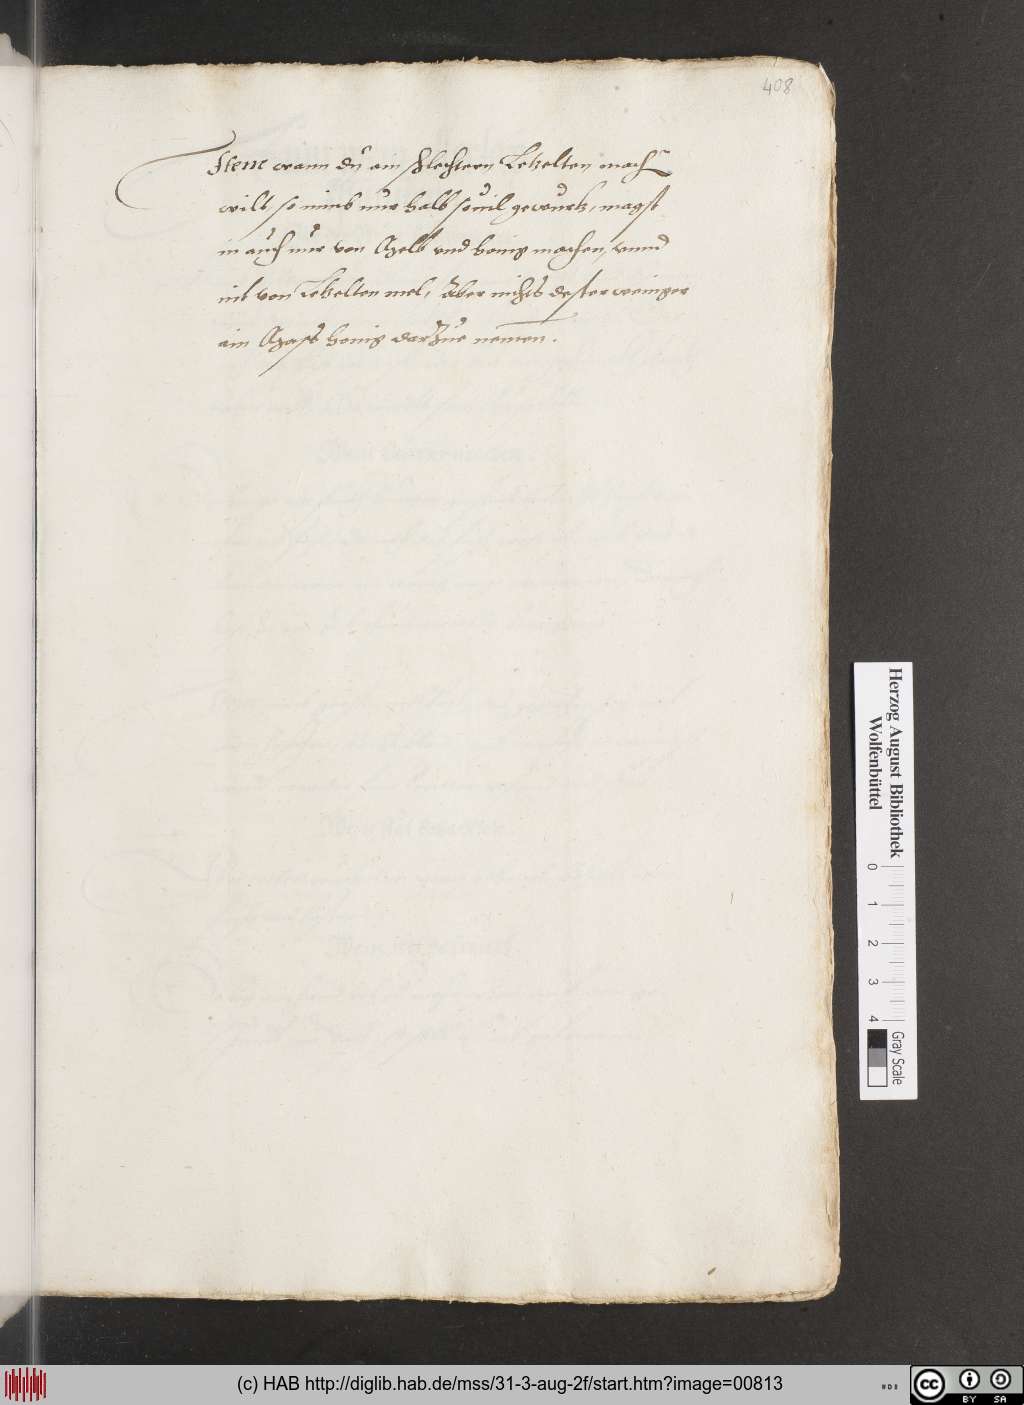 408
Item wann du ain schlechtern Letzelten mach
wilt, so nimb nur halb souil gewurtz, magst
in auch nur von Melb vnd honig machen, vnnd
nit von Letzelten mel, Aber nichts dester weniger
ain Mass honig darzue nemen.
Herzog August Bibliothek
Wolfenbüttel
0 1 2 3 4
Gray Scale
(c) HAB http://diglib.hab.de/mss/31-3-aug-2f/start.htm?image=00813
cc BY SA